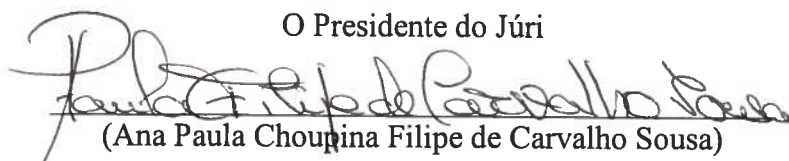 O Presidente do Júri
Paula Filipe de Carvalho Sousa
(Ana Paula Choupina Filipe de Carvalho Sousa)